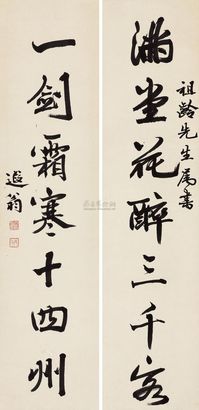 满堂花醉三千客
祖龄先生属书
一剑霜寒十四州
遐翁